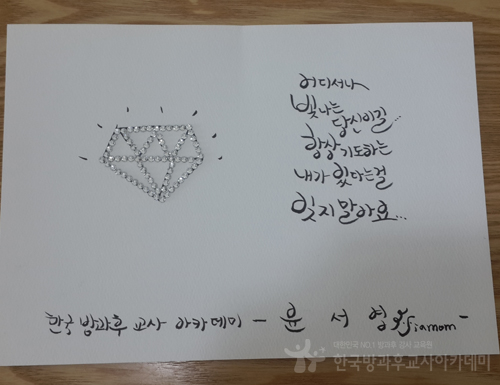 어디서나
빛나는
당신이길...
항상 기도하는
내가 있다는걸
잊지 말아요...
한국 방과후 교사 아카데미 - 윤 서 영
대한민국 NO.1 방과후 강사 교육원
한국방과후교사아카데미